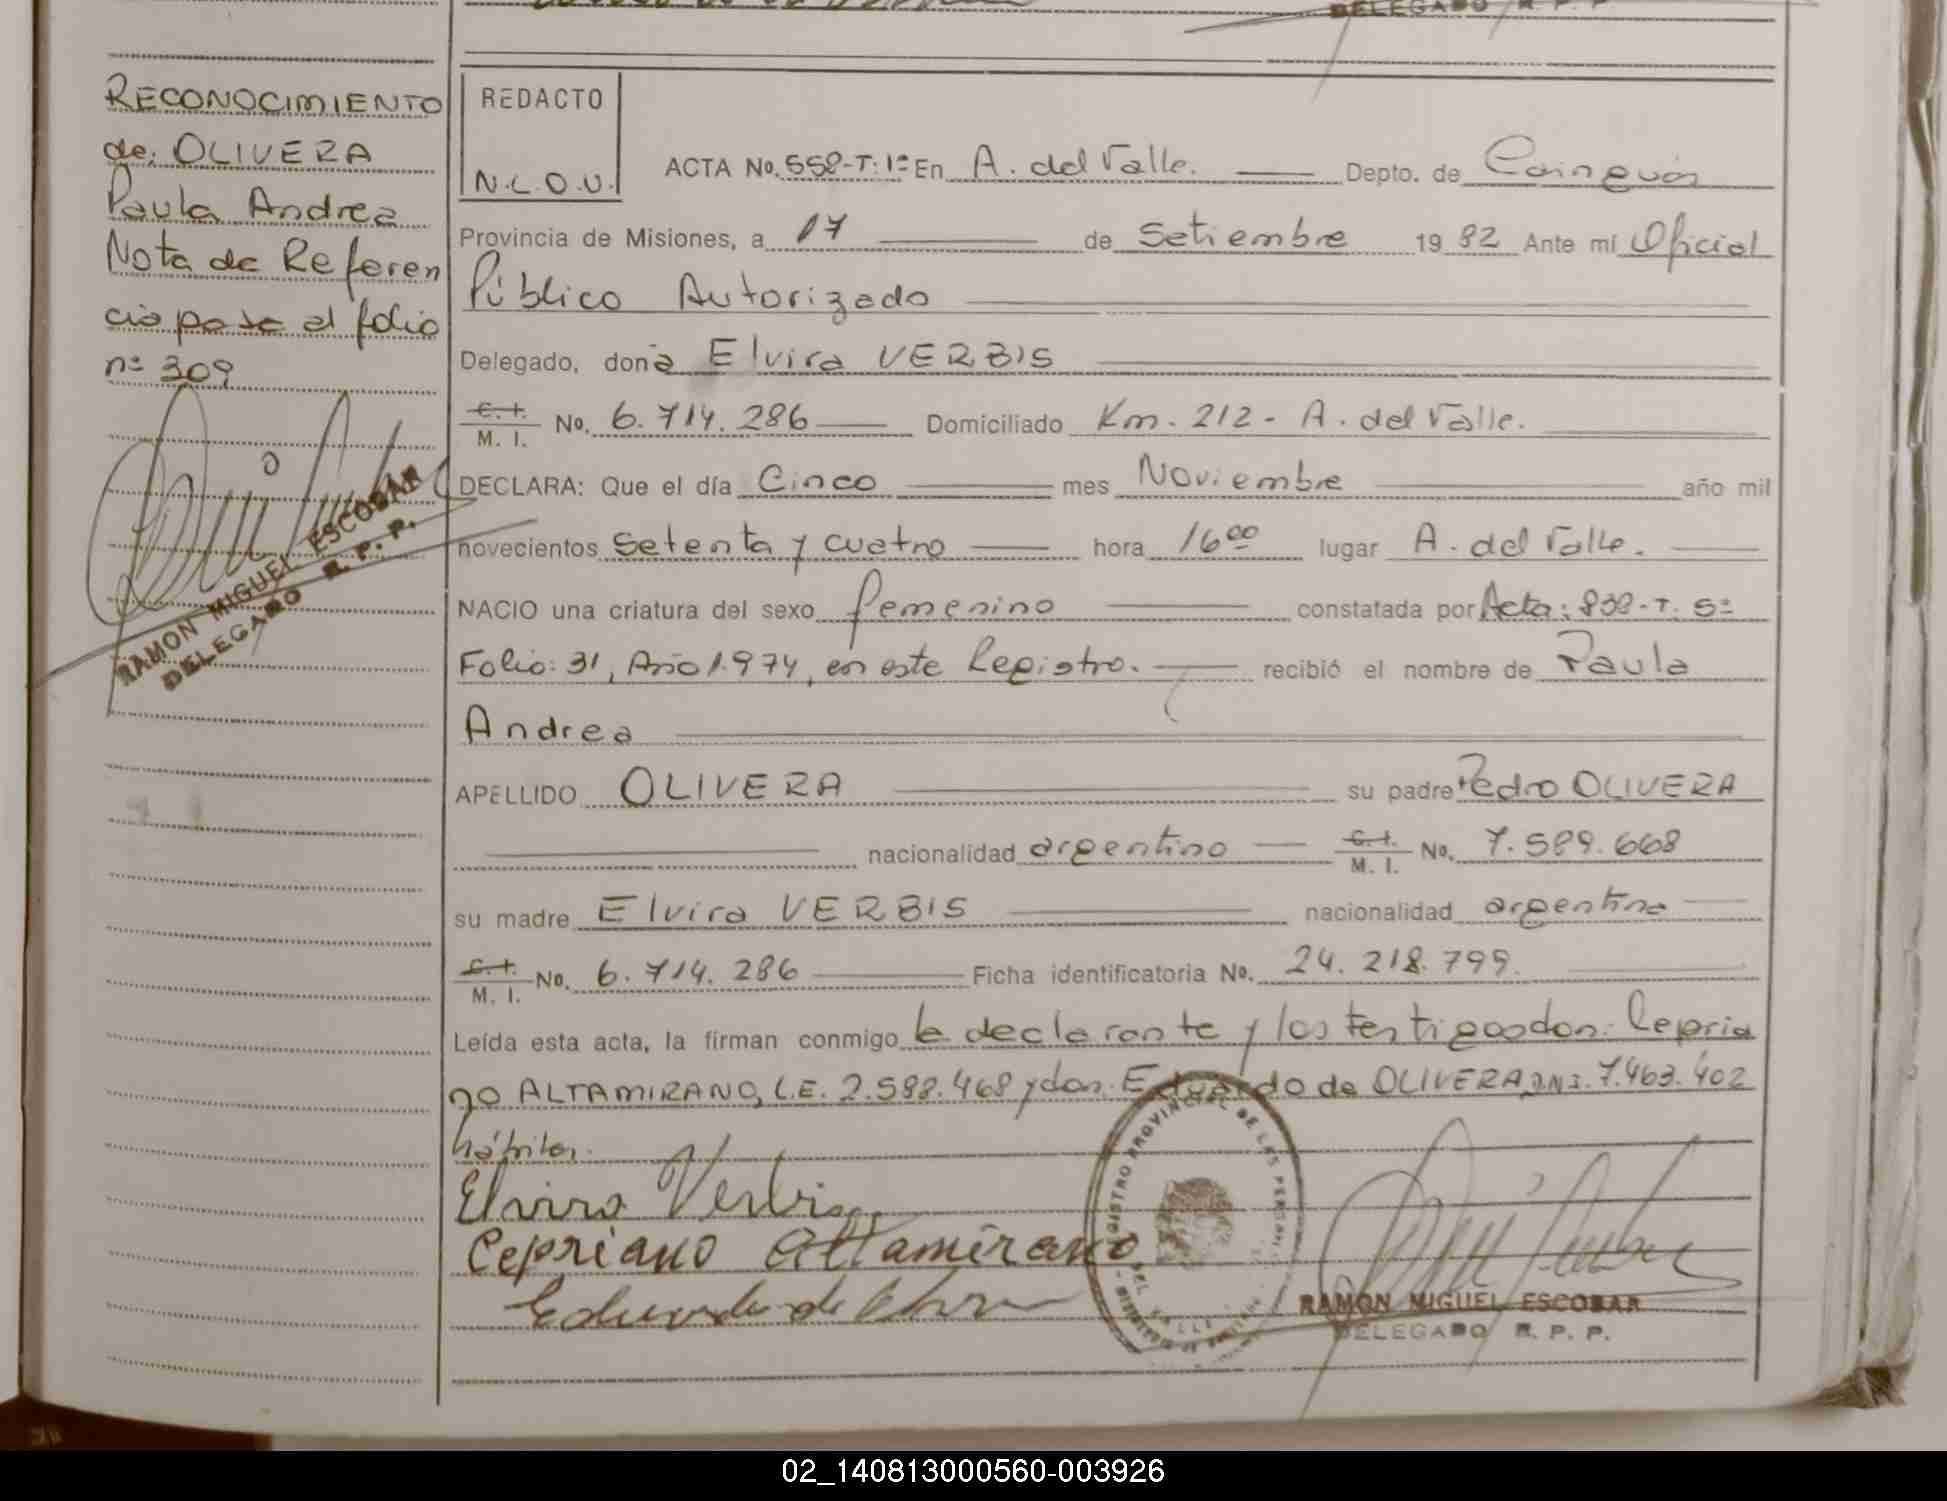 DELEGADO R. P. P
RECONOCIMIENTO
de: OLIVERA
Paula Andrea
Nota de Referen
cia pasa al folio
nº 309
RAMON MIGUEL ESCOBAR
DELEGADO R. P. P.
REDACTO
N.L.O.V.
ACTA No. 558-T:1º En A. del Valle. Depto. de Cainguás
Provincia de Misiones, a 17 de Setiembre 1982 Ante mí Oficial
Público Autorizado
Delegado, doña Elvira VERBIS
C. I. M. I. No. 6.714.286 Domiciliado Km. 212 - A. del Valle.
DECLARA: Que el día Cinco mes Noviembre año mil
novecientos setenta y cuatro hora 16⁰⁰ lugar A. del Valle.
NACIO una criatura del sexo femenino constatada por Acta: 838-T. 5º
Folio: 31, Año 1.974, en este Registro. recibió el nombre de Paula
Andrea
APELLIDO OLIVERA su padre Pedro OLIVERA
nacionalidad argentino C. I. M. I. No. 7.589.668
su madre Elvira VERBIS nacionalidad argentina
C. I. M. I. No. 6.714.286 Ficha identificatoria No. 24.218.799.
Leída esta acta, la firman conmigo la declarante y los testigos don: Cepria
no ALTAMIRANO, L.E. 2.588.468 y don. Eduardo de OLIVERA D.N.I. 7.463.402
hábiles.
Elvira Verbis
Cepriano Altamirano
Eduardo de Olivera
REGISTRO PROVINCIAL DE LAS PERSONAS
RAMON MIGUEL ESCOBAR
DELEGADO R. P. P.
02_140813000560-003926